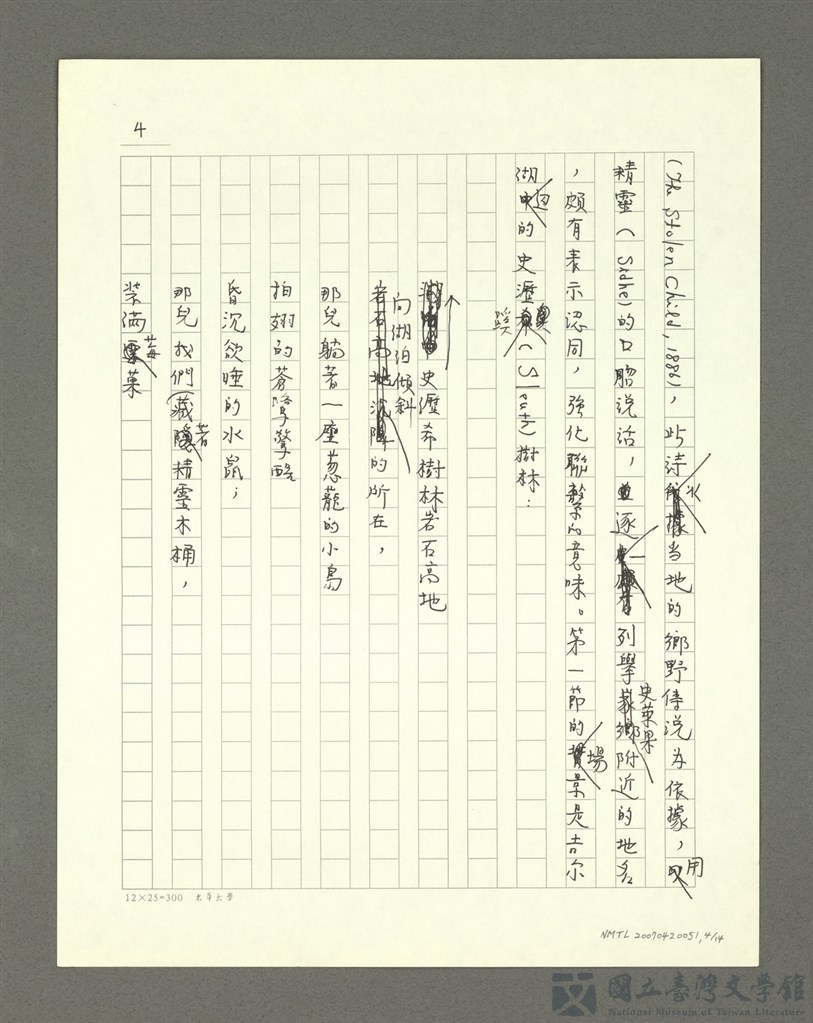 4
(The Stolen Child, 1886), 此詩以當地的鄉野傳說為依據,用
精靈(Sidhe)的口腔說話,並逐一列舉史萊果附近的地名
,頗有表示認同,強化聯繫的意味。第一節的場景是吉尔
湖邊的史瀝奧(Sleuth)樹林:
史瀝希樹林岩石高地
向湖泊傾斜的所在,
那兒躺著一座蔥蘢的小島
拍翅的蒼鷺驚醒
昏沉欲睡的水鼠;
那兒我們藏著精靈木桶,
裝滿莓菓
12×25=300 東華大學
NMTL 20070420051, 4/14
國立臺灣文學館
National Museum of Taiwan Literature